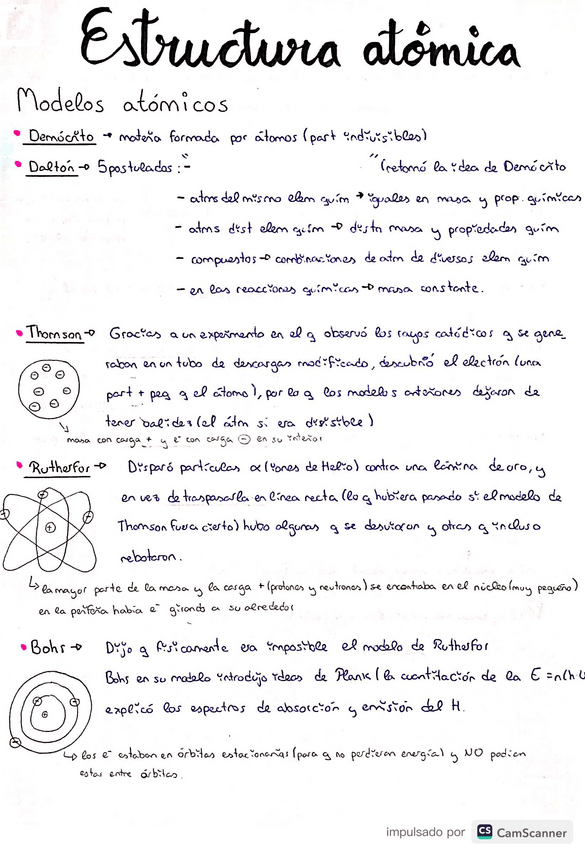 Estructura atómica
Modelos atómicos
• Demócrito → materia formada por átomos (part indivisibles)
• Dalton → 5 postulados: - " (retomó la idea de Demócrito
- atms del mismo elem quím → iguales en masa y prop. químicas
- atms dist elem quím → distn masa y propiedades quím
- compuestos → combinaciones de atm de diversos elem quím
- en las reacciones químicas → masa constante.
• Thomson → Gracias a un experimento en el q observó los rayos catódicos q se gene
raban en un tubo de descargas modificado, descubrió el electrón (una
part + peq q el átomo), por lo q los modelos anteriores dejaron de
tener validez (el átm si era divisible)
masa con carga + y e⁻ con carga ⊖ en su interior
• Rutherfor → Disparó partículas α (iones de Helio) contra una lámina de oro, y
en vez de traspasarla en línea recta (lo q hubiera pasado si el modelo de
Thomson fuera cierto) hubo algunas q se desviaron y otras q incluso
rebotaron.
↳ la mayor parte de la masa y la carga + (protones y neutrones) se encontraba en el núcleo (muy pequeño)
en la periferia había e⁻ girando a su alrededor
• Bohr → Dijo q físicamente era imposible el modelo de Rutherfor
Bohr en su modelo introdujo ideas de Plank (la cuantilación de la E = n(h·
explicó los espectros de absorción y emisión del H.
↳ los e⁻ estaban en órbitas estacionarias (para q no perdieran energía) y NO podían
estar entre órbitas.
impulsado por CS CamScanner